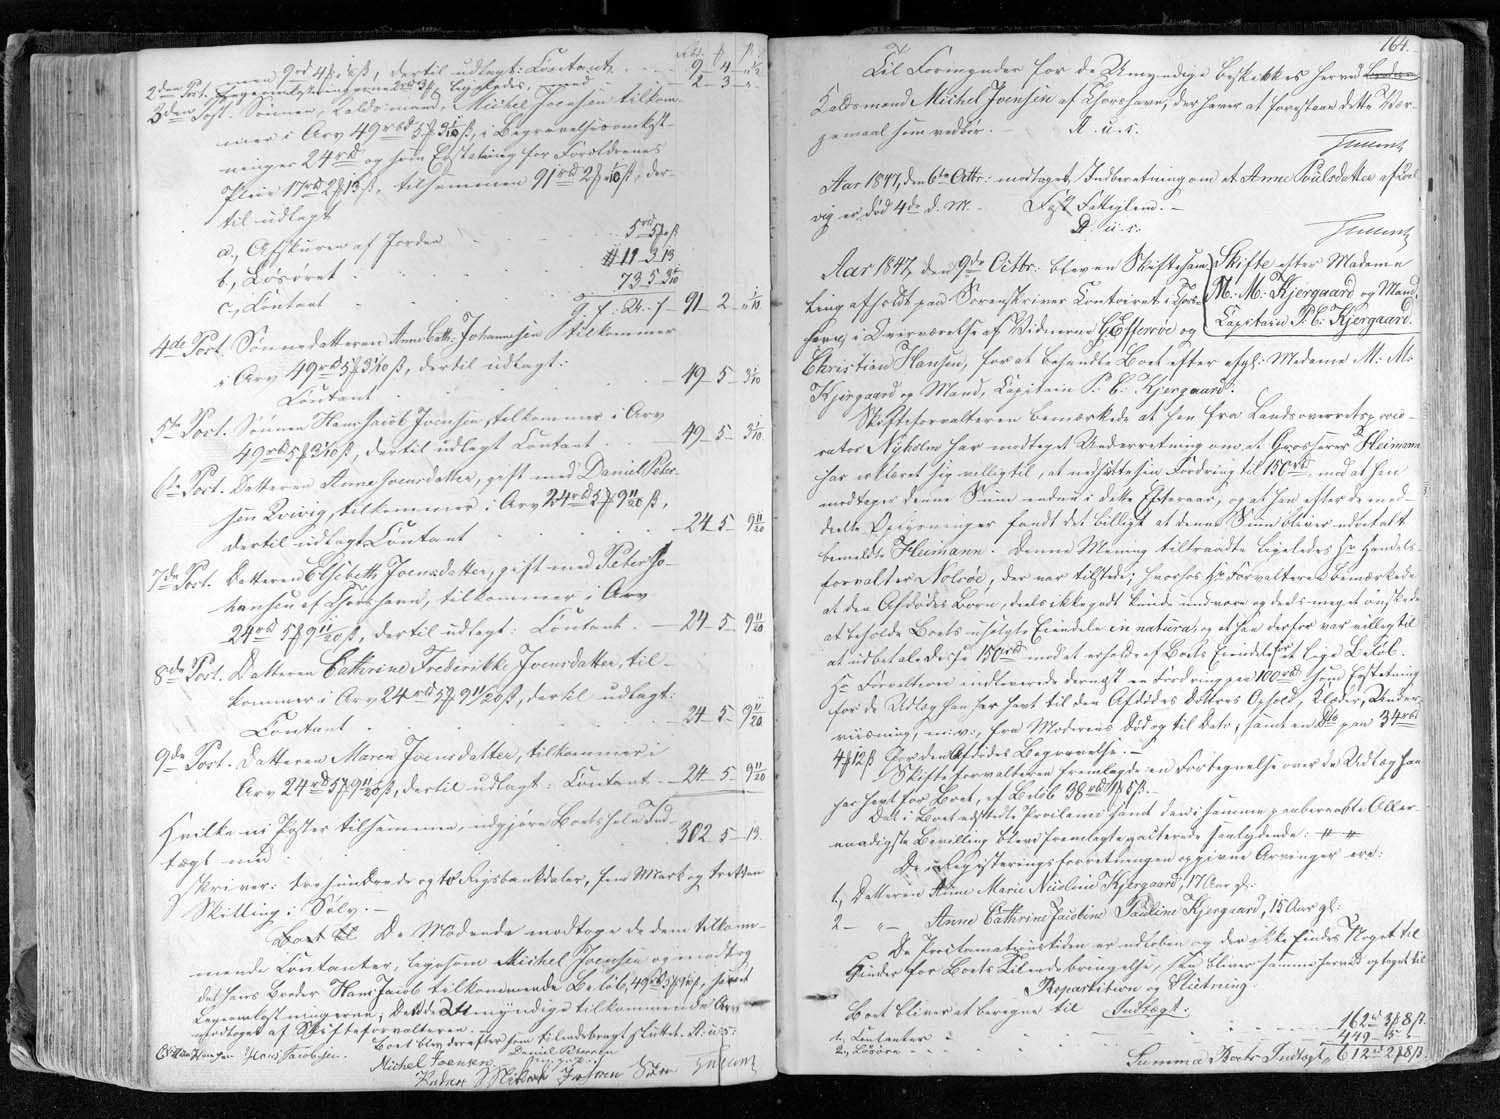 men 9rd 4 ß, dertil udlagt: Contant 9 – 4 –
2den Post.
3die Post. Sønnen, Michel Joensen tilkom-
mer i Arv 49rd 5 3 1/10 ß, i Begravelsesomkost-
ninger 24rd og som Erstatning for Forældrenes
Pleie 17rd 2 13 ß, tilsammen 91rd 2 1/10 ß, der-
til udlagt
a, Afskuren af Jorden 5rd 5
b, Løsøret 11 3 13
c, Contant 73 5 3 1/10
91 – 2 – 1/10
4de Post. Sønnedatteren Anne Cath: Johannesen tilkommer
i Arv 49rd 5 3 1/10 ß, dertil udlagt:
Contant 49 – 5 – 3 1/10
5te Post. Sønnen Hans Jacob Joensen, tilkommer i Arv
49rd 5 3 1/10 ß, dertil udlagt Contant 49 – 5 – 3 1/10
6te Post. Datteren Anne Joensdatter, gift med Daniel Peter-
sen Qvivig, tilkommer i Arv 24rd 5 9 11/20 ß,
dertil udlagt Contant 24 – 5 – 9 11/20
7de Post. Datteren Elsebeth Joensdatter, gift med Peter Jo-
hansen af Thorshavn, tilkommer i Arv
24rd 5 9 11/20 ß, dertil udlagt: Contant 24 – 5 – 9 11/20
8de Post. Datteren Cathrine Frederikke Joensdatter, til-
kommer i Arv 24rd 5 9 11/20 ß, dertil udlagt:
Contant 24 – 5 – 9 11/20
9de Post. Datteren Maren Joensdatter, tilkommer i
Arv 24rd 5 9 11/20 ß, dertil udlagt: Contant 24 – 5 – 9 11/20
Hvilke ni Poster tilsammen, udgjøre Boets hele Ind-
tægt med 302 – 5 – 13
skriver: trehundrede og to Rigsbankdaler, fem Mark og tretten
Skilling i Sølv. –
De Mødende modtoge de dem tilkom-
mende Contanter, ligesom Michel Joensen og modtog
det hans Broder Hans Jacob tilkommende Beløb, 49rd
Umyndige tilkommende Arv
modtoges af Skifteforvalteren. –
Boet blev derefter som tilendebragt sluttet. D. u. s:
Christian Hansen Hans Jacobsen. Daniel Petersen
Michel Joensen
164.
Til Formynder for de Umyndige beskikkes herved
Michel Joensen af Thorshavn, der haver at forestaae dette Vær-
gemaal som vedbør. – D. u. s.
Aar 1847, den 6te Octbr: modtoges Indberetning om at Anne Poulsdatter af Qval-
vig er død 4de d. M. – Fattiglem. –
D. u. s.
Aar 1847, den 9de Octbr: blev en Skiftesam-
ling afholdt paa Sorenskriver Contoiret i Thors-
havn, i Overværelse af Vidnerne Effersøe og
Skifte efter Madame
M: M: Kjergaard og Mand
Capitain P: C: Kjergaard.
Christian Hansen, for at behandle Boet efter afgl: Madame M: M:
Kjergaard og Mand, Capitain P. C: Kjergaard.
Skifteforvalteren bemærkede at han fra Landsoverretsprocu-
rator Nyholm har modtaget Underretning om at Grosserer Heimann
har erklæret sig villig til, at nedsætte sin Fordring til 150rd, mod at han
modtager denne Sum endnu i dette Efteraar, og at han efter de med-
deelte Oplysninger fandt det billigt at denne Sum bliver udbetalt
bemeldte Heimann. Denne Mening tiltraadte ligeledes Hr Handels-
forvalter Nolsøe, der var tilstede; hvorhos Hr Forvalteren bemærkede
at den Afdødes Børn, deels ikke godt kunde undvære og deels meget ønskede
at beholde Boets usolgte Eiendele in natura, og at han derfor var villig til
at udbetale disse 150rd mod at erholde af Boets Eiendele for et lige Beløb.
Hr Forvalteren indleverede dernæst en Fordring paa 100rd, som Erstatning
for de Udlæg han har havt til den Afdødes Døttres Ophold, Klæder, Under-
viisning, m: v:, fra Moderens Død og til Dato, samt en Do paa 34rbd
4 12 ß for den Afdødes Begravelse. –
Skifteforvalteren fremlagde en Fortegnelse over de Udlæg han
har havt for Boet, af Beløb 38rbd 1 5 ß. –
Det i Boet udstedte Proclama samt den i samme paaberaabte Aller-
naadigste Bevilling blev fremlagte, saalydende: # #
De i Registreringsforretningen opgivne Arvinger ere:
1, Datteren Anne Marie Nicoline Kjergaard, 17 Aar gl:
2 – " – Anne Cathrine Jacobine Pauline Kjergaard, 15 Aar gl:
Da Proclamationstiden er udløben og der ikke findes Noget til
Hinder for Boets Tilendebringelse, saa bliver samme herved optaget til
Repartition og Slutning.
Boet bliver at beregne til Indtægt:
1, Contanter 162rd 3 8 ß
2, Løsøre 449 – 5 –
Summa Boets Indtægt, 612rd 2 8 ß.